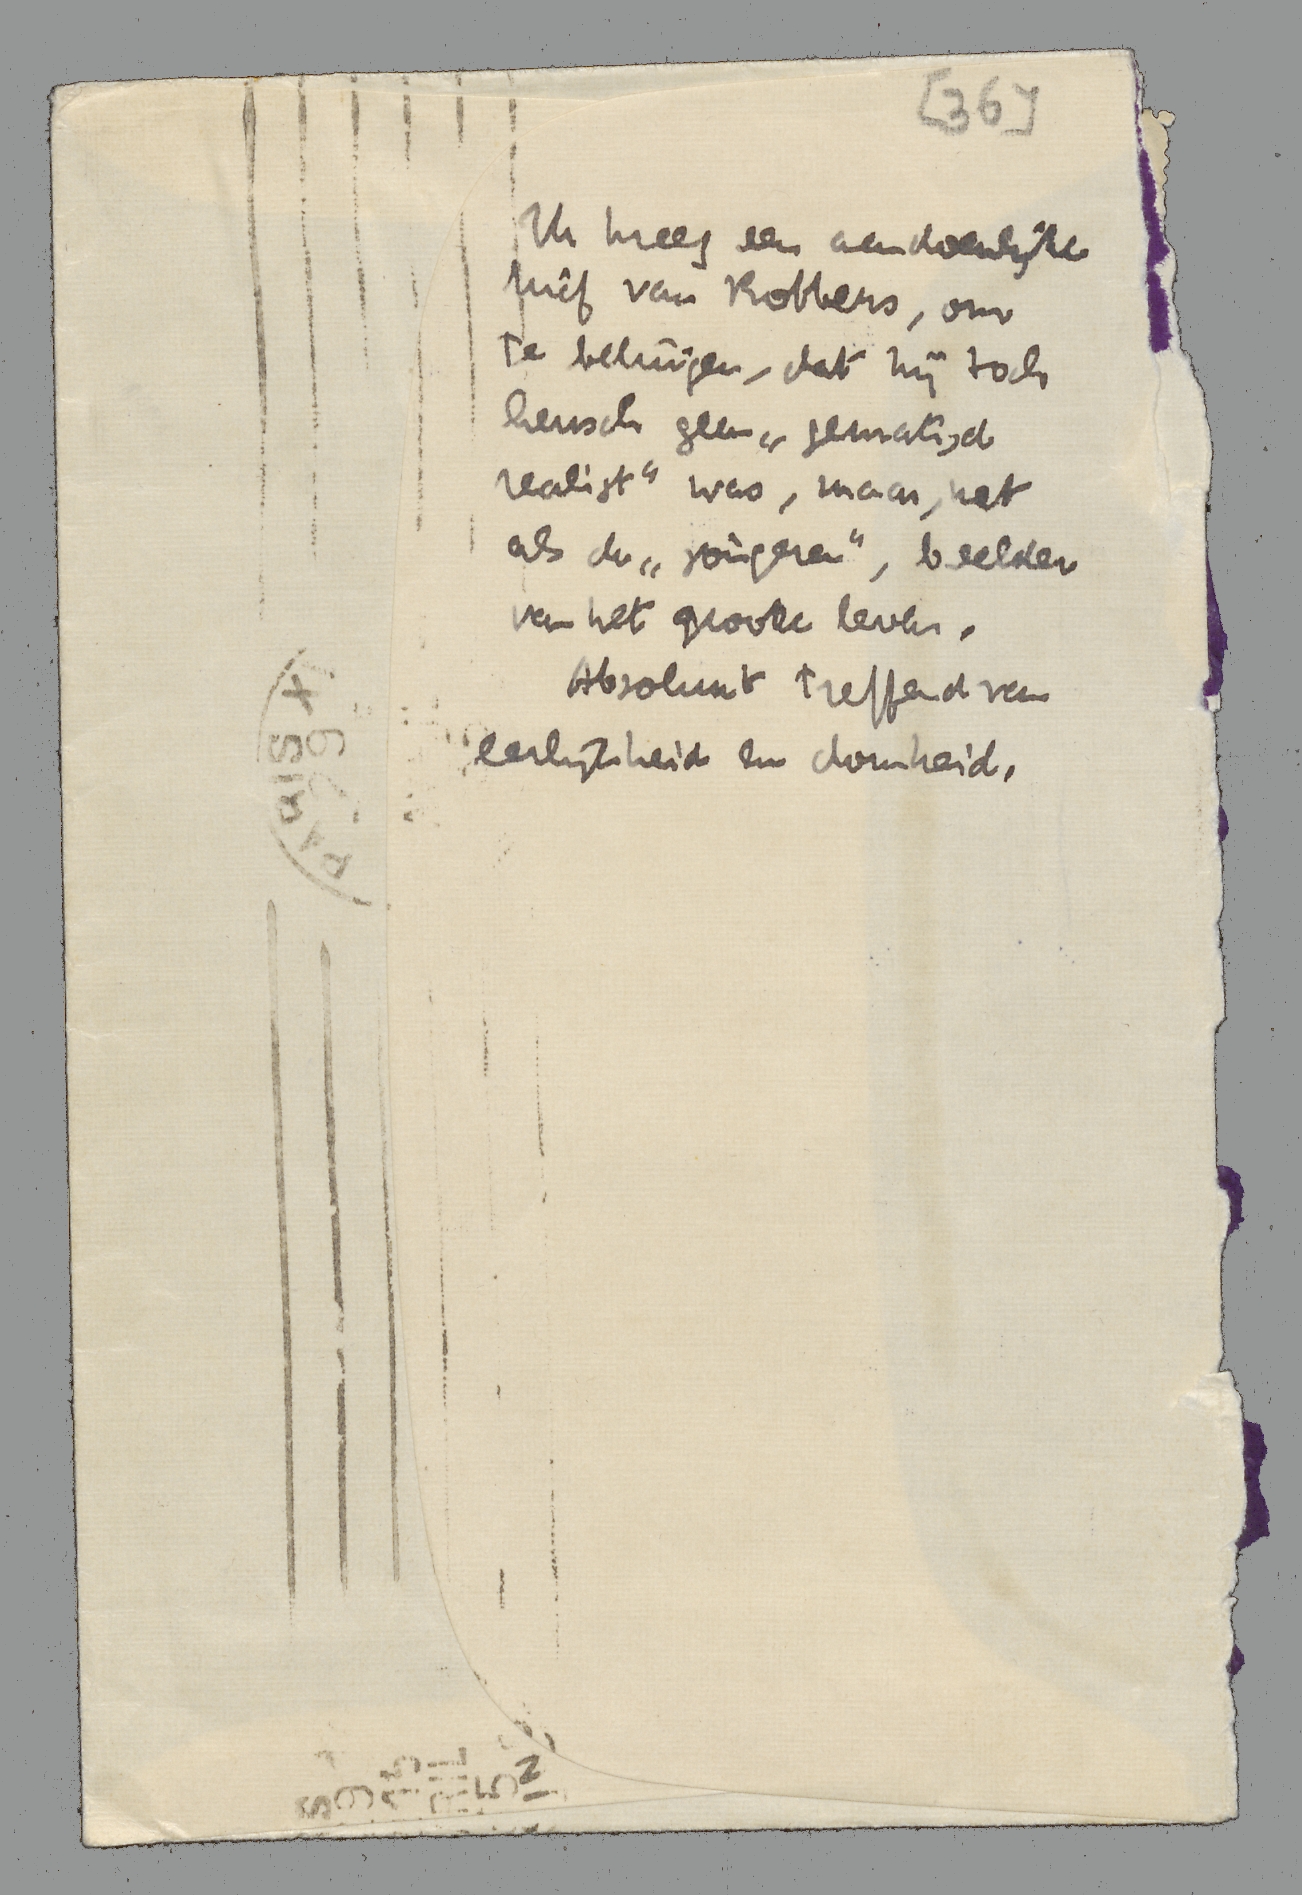 [36]
Ik kreeg een aandoenlijke
brief van Robbers, om
te betuigen, dat hij toch
heusch geen „gematigd
realist“ was, maar, net
als de „jongeren“, beelder
van het groote leven.
Absoluut treffend van
eerlijkheid en domheid.
PARIS X